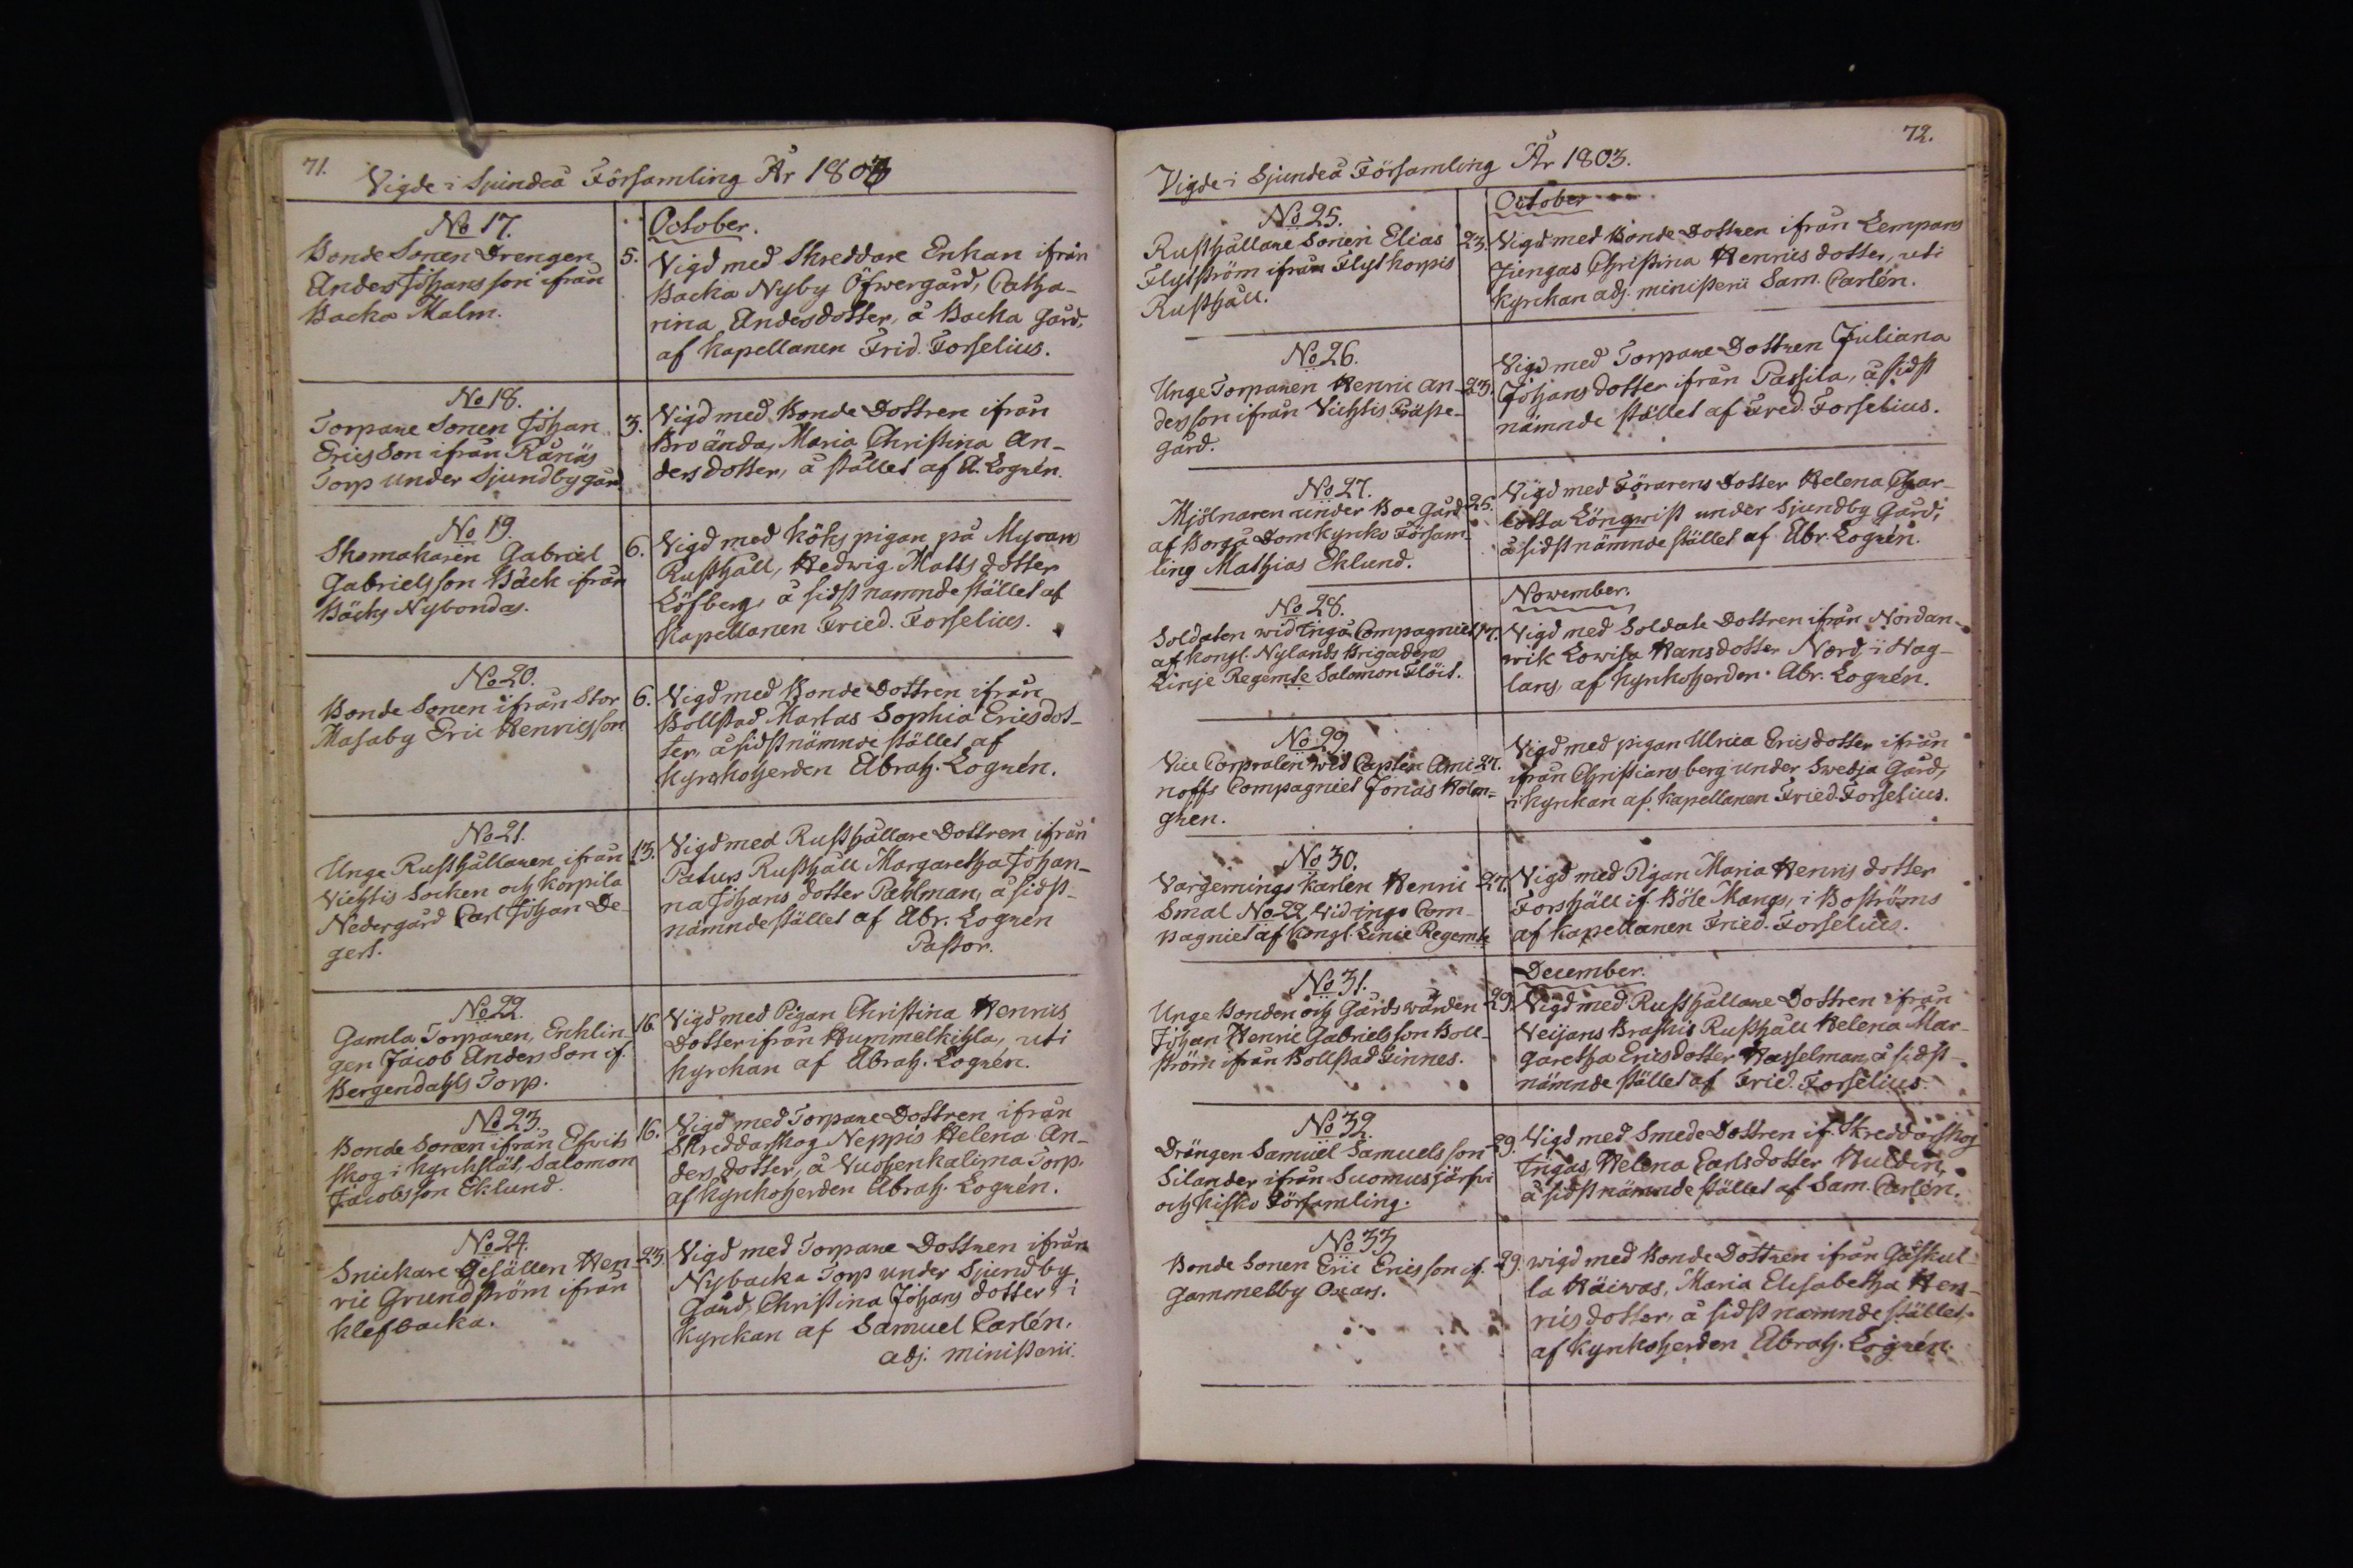 71.
Vigde i Sjundeå Församling År 1803
No 17.
Bonde Sonen Drengen
Anders Johansson ifrån
Backa Malm.
October.
5. Vigd med Skreddare Enkan ifrån
Backa Nyby Öfwergård, Catha-
rina Andersdotter, å Backa gård,
af Kapellanen Frid. Forselius.
No 18.
Torpare Sonen Johan
Ericsson ifrån Rånäs
Torp under Sjundby gård
3. Vigd med Bonde Dottren ifrån
Broända, Maria Christina An-
dersdotter, å stället af A. Logrén.
No 19.
Skomakaren Gabriel
Gabrielsson Bäck ifrån
Bäcks Nybondas.
6. Vigd med Köks pigan på Myrans
Rusthåll, Hedwig Matts dotter
Löfberg, å sidstnamnde stället af
Kapellanen Fried. Forselius.
No 20.
Bonde Sonen ifrån Stor
Masaby Eric Henricsson
6. Vigd med Bonde Dottren ifrån
Bollstad Martas Sophia Ericsdot-
ter, å sidstnämnde stället af
Kyrckoherden Abrah. Logrén.
No 21.
Unge Rusthållaren ifrån
Vichtis Socken och Korpila
Nedergård Carl Johan De-
gert.
13. Vigd med Rusthållare Dottren ifrån
Paturs Rusthåll Margaretha Johan-
na Johans dotter Pahlman, å sidst-
nämnde stället af Abr. Logrén
Pastor.
No 22.
Gamla Torparen, Encklin-
gen Jacob Andersson if.
Bergendahls Torp.
16. Vigd med Pigan Christina Henrics
Dotter ifrån Hummelkihla, uti
Kyrckan af Abrah. Logrén.
No 23.
Bonde Sonen ifrån Efwits
skog i Kyrckslät, Salomon
Jacobsson Eklund.
16. Vigd med Torpare Dottren ifrån
Skreddarskog Neppis Helena An-
ders dotter, å Vuohenkalima Torp.
af Kyrkoherden Abrah. Logrén.
No 24.
Snickare Gesällen Hen-
ric Grundström ifrån
Klefbacka.
23. Vigd med Torpare Dottren ifrån
Nybacka Torp under Sjundby
Gård, Christina Johans dotter i
Kyrckan af Samuel Carlén.
adj. ministerii.
72.
Vigde i Sjundeå Församling År 1803.
No 25.
Rusthållare Sonen Elias
Flytström ifrån Flythorpis
Rusthåll.
October
23. Vigd med Bonde Dottren ifrån Lempans
Jungas Christina Henrics dotter, uti
Kyrckan adj. ministerii Sam. Carlén.
No 26.
Unge Torparen Henric An-
dersson ifrån Vichtis Präste-
gård.
23. Vigd med Torpare Dottren Juliana
Johans dotter ifrån Passila, å sidst
nämnde stället af Fred. Forselius.
No 27.
Mjölnaren under Boe Gård
af Borgå Domkyrko Försam-
ling Mathias Eklund.
25. Vigd med Förarens Dotter Helena Char-
lotta Lönqwist under Sjundby Gård,
å sidstnämnde stället af Abr. Logrén.
No 28.
Soldaten wid Ingå Compagniet
af Kongl. Nylands Brigadens
Linje Regemte Salomon Flöit.
November.
17. Vigd med Soldate Dottren ifrån Nordan-
wik Lowisa Hansdotter Nord, i Nag-
lans, af Kyrkoherden Abr. Logrén.
No 29.
Vice Corpralen wid Capten Ami-
noffs Compagniet Jonas Holm-
gren.
27. Vigd med pigan Ulrica Ericsdotter ifrån
ifrån Christians berg under Swedja Gård,
i Kyrckan af Kapellanen Fried. Forselius.
No 30.
Vargernings Karlen Henric
Smal No 22 Vid ingo Com-
pagniet af Kongl. Linie Regemte
27. Vigd med Pigan Maria Henrics dotter
Forshäll if. Böle Mangs, i Boströms
af Kapellanen Fried. Forselius.
No 31.
Unge Bonden och Gårdswärden
Johan Henric Gabrielsson Boll-
ström ifrån Bollstad Finnes.
December.
29. Vigd med Rusthållare Dottren ifrån
Veijans Braskis Rusthåll Helena Mar-
garetha Ericsdotter Hasselman, å sidst-
nämnde stället af Fried. Forselius.
No 32.
Drängen Samuel Samuelsson
Silander ifrån Suomusjärfvi
och Kisko Församling.
29. Vigd med Smede Dottren if. Skreddarskog
Ingas, Helena Carlsdotter Huldin,
å sidstnämnde stället af Sam. Carlén.
No 33
Bonde Sonen Eric Ericsson if.
Gammelby Oscars.
29. wigd med Bonde Dottren ifrån Gåskul-
la Häiwas, Maria Elisabetha Hen-
rics dotter, å sidst namnde stället,
af Kyrkoherden Abrah. Logrén.